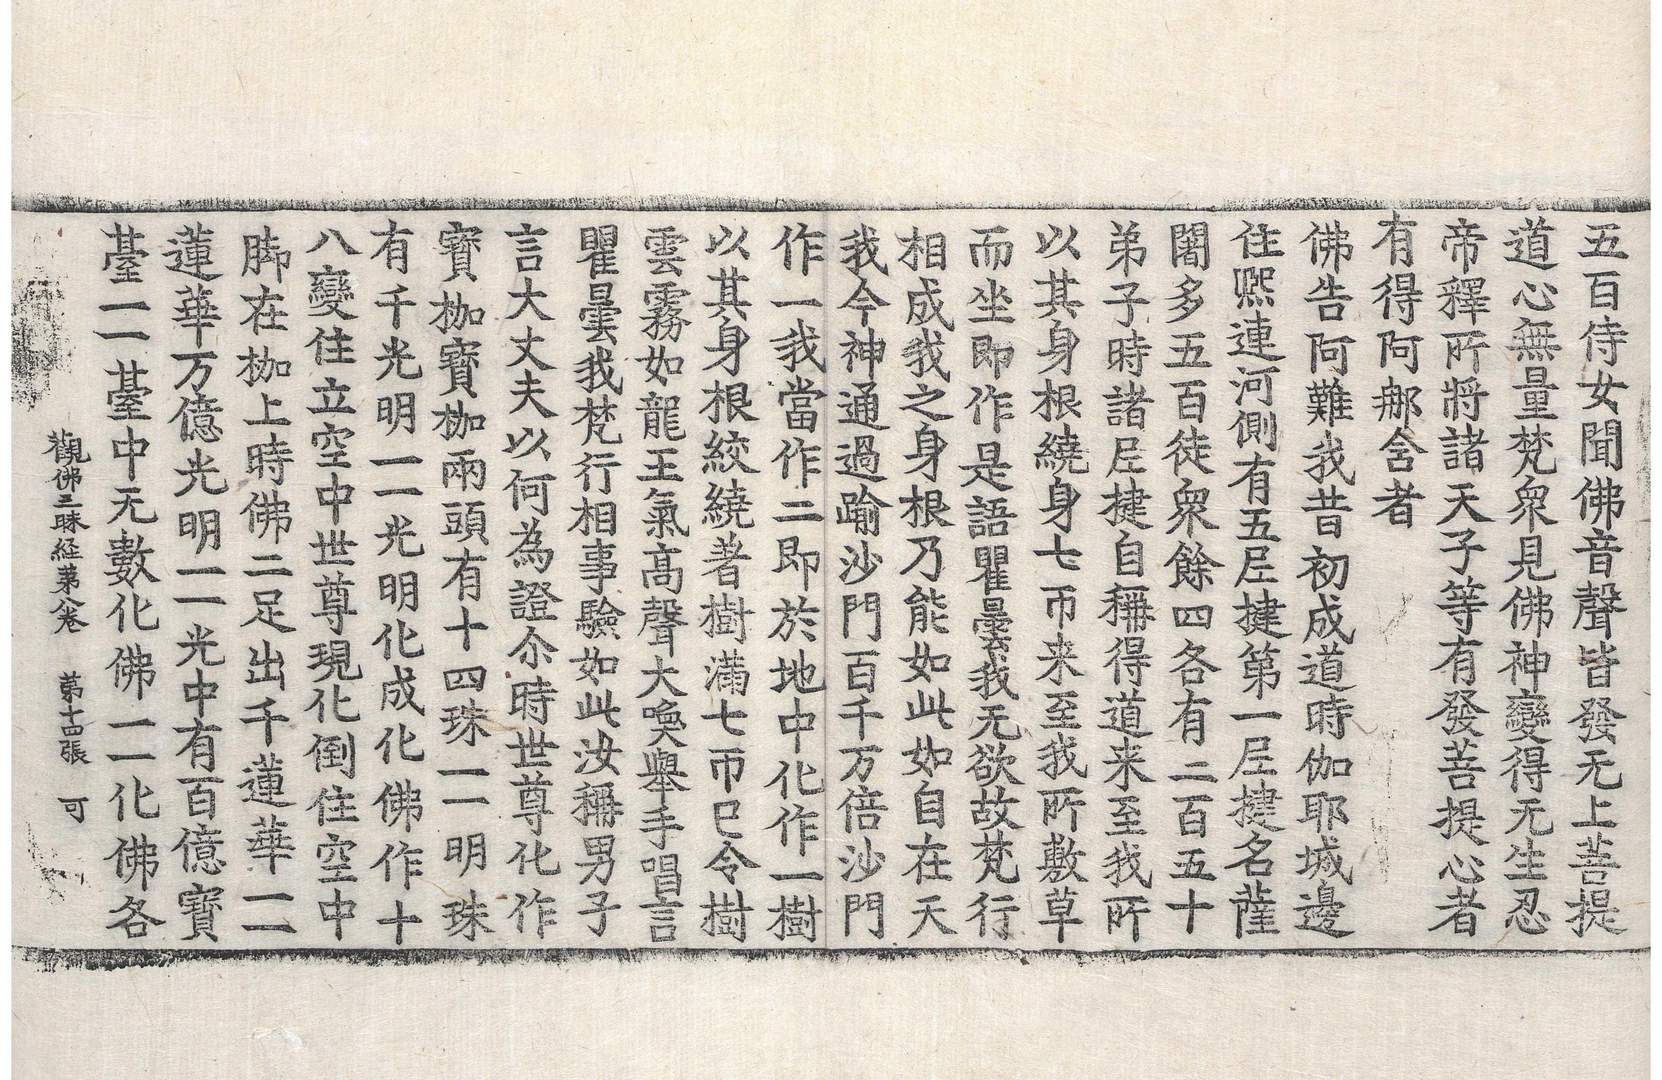 五百侍女聞佛音聲皆發无上菩提
道心無量梵衆見佛神變得无生忍
帝釋所將諸天子等有發菩提心者
有得阿那含者
佛告阿難我昔初成道時伽耶城邊
住熈連河側有五尼揵第一尼揵名薩
闍多五百徒衆餘四各有二百五十
弟子時諸尼揵自稱得道来至我所
以其身根繞身七帀来至我所敷草
而坐即作是語瞿曇我无欲故梵行
相成我之身根乃能如此如自在天
我今神通過踰沙門百千万倍沙門
作一我當作二即於地中化作一樹
以其身根絞繞著樹滿七帀已令樹
雲霧如龍王氣高聲大喚舉手唱言
瞿曇我梵行相事驗如此汝稱男子
言大丈夫以何為證尒時世尊化作
寶枷寶枷兩頭有十四珠一一明珠
有千光明一一光明化成化佛作十
八變住立空中世尊現化倒住空中
脚在枷上時佛二足出千蓮華一一
蓮華万億光明一一光中有百億寶
臺一一臺中无數化佛一一化佛各
觀佛三昧経第八卷 第十四張 可